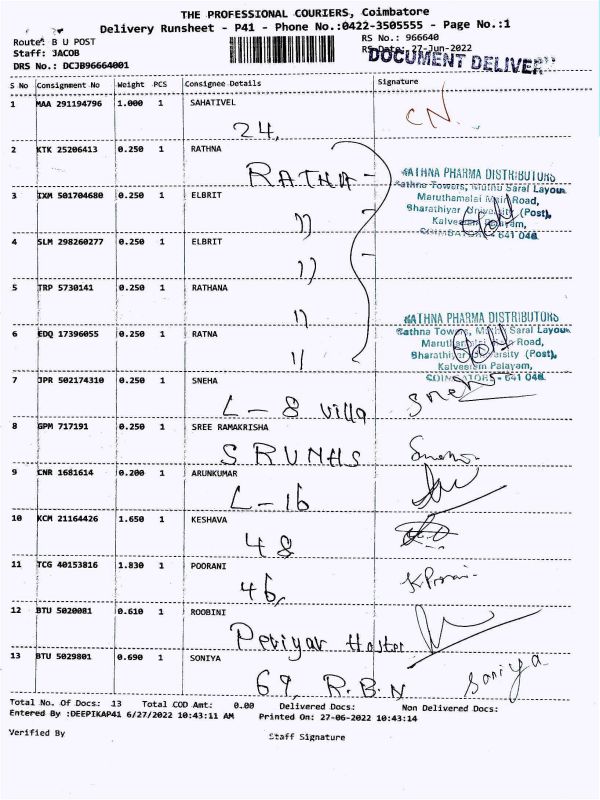 THE PROFESSIONAL COURIERS, Coimbatore
Delivery Runsheet - P41 - Phone No.:0422-3505555 - Page No.:1
Route: B U POST
RS No.: 966640
Staff: JACOB
RS Date: 27-Jun-2022
DOCUMENT DELIVER
DRS No.: DCJB96664001
S No Consignment No Weight PCS Consignee Details Signature
1 MAA 291194796 1.000 1 SAHATIVEL
24, CN.
2 KTK 25206413 0.250 1 RATHNA
RATHNA
RATHNA PHARMA DISTRIBUTORS
Rathna Towers, Muthu Saral Layou
Maruthamalai Main Road,
Bharathiyar University (Post),
Kalveeram Palayam,
COIMBATORE - 641 046
3 IXM 501704680 0.250 1 ELBRIT
11
4 SLM 298260277 0.250 1 ELBRIT
11
5 TRP 5730141 0.250 1 RATHANA
11
6 EDQ 17396055 0.250 1 RATNA
11
RATHNA PHARMA DISTRIBUTORS
Rathna Towers, Muthu Saral Layou
Maruthamalai Main Road,
Bharathiyar University (Post),
Kalveeram Palayam,
COIMBATORE - 641 046
7 JPR 502174310 0.250 1 SNEHA
L - 8 Villa
8 GPM 717191 0.250 1 SREE RAMAKRISHA
9 CNR 1681614 0.200 1 ARUNKUMAR
L-16
10 KCM 21164426 1.650 1 KESHAVA
48
11 TCG 40153816 1.830 1 POORANI
46,
12 BTU 5020081 0.610 1 ROOBINI
Periyar Hostel
13 BTU 5029801 0.690 1 SONIYA
69, R.B.N Soniya
Total No. Of Docs: 13 Total COD Amt: 0.00 Delivered Docs: Non Delivered Docs:
Entered By :DEEPIKAP41 6/27/2022 10:43:11 AM Printed On: 27-06-2022 10:43:14
Verified By Staff Signature